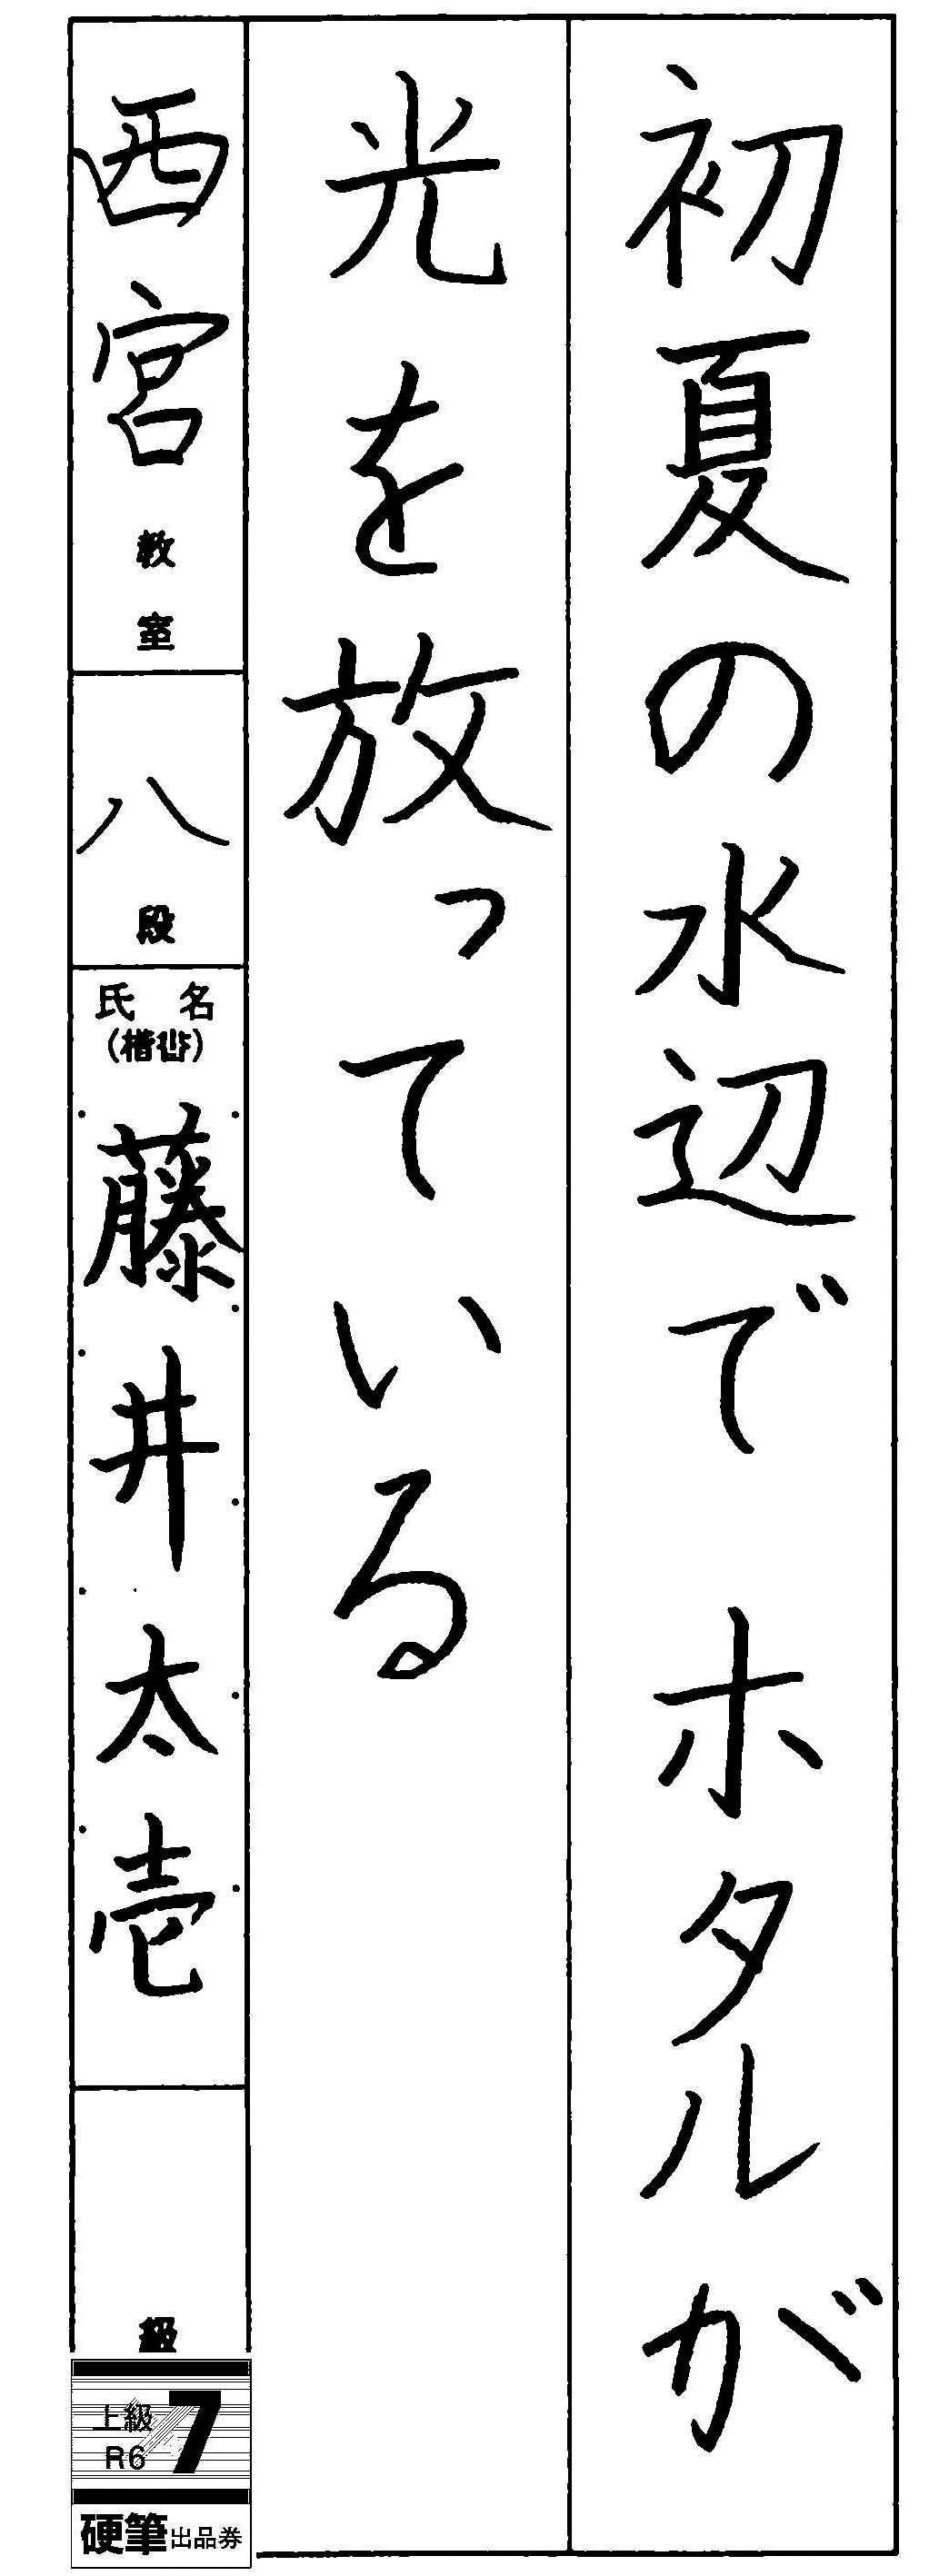 初夏の水辺で ホタルが
光を放っている
西宮教室
八段
氏名
(楷書)
藤井太壱
級
上級 7
R6
硬筆出品券